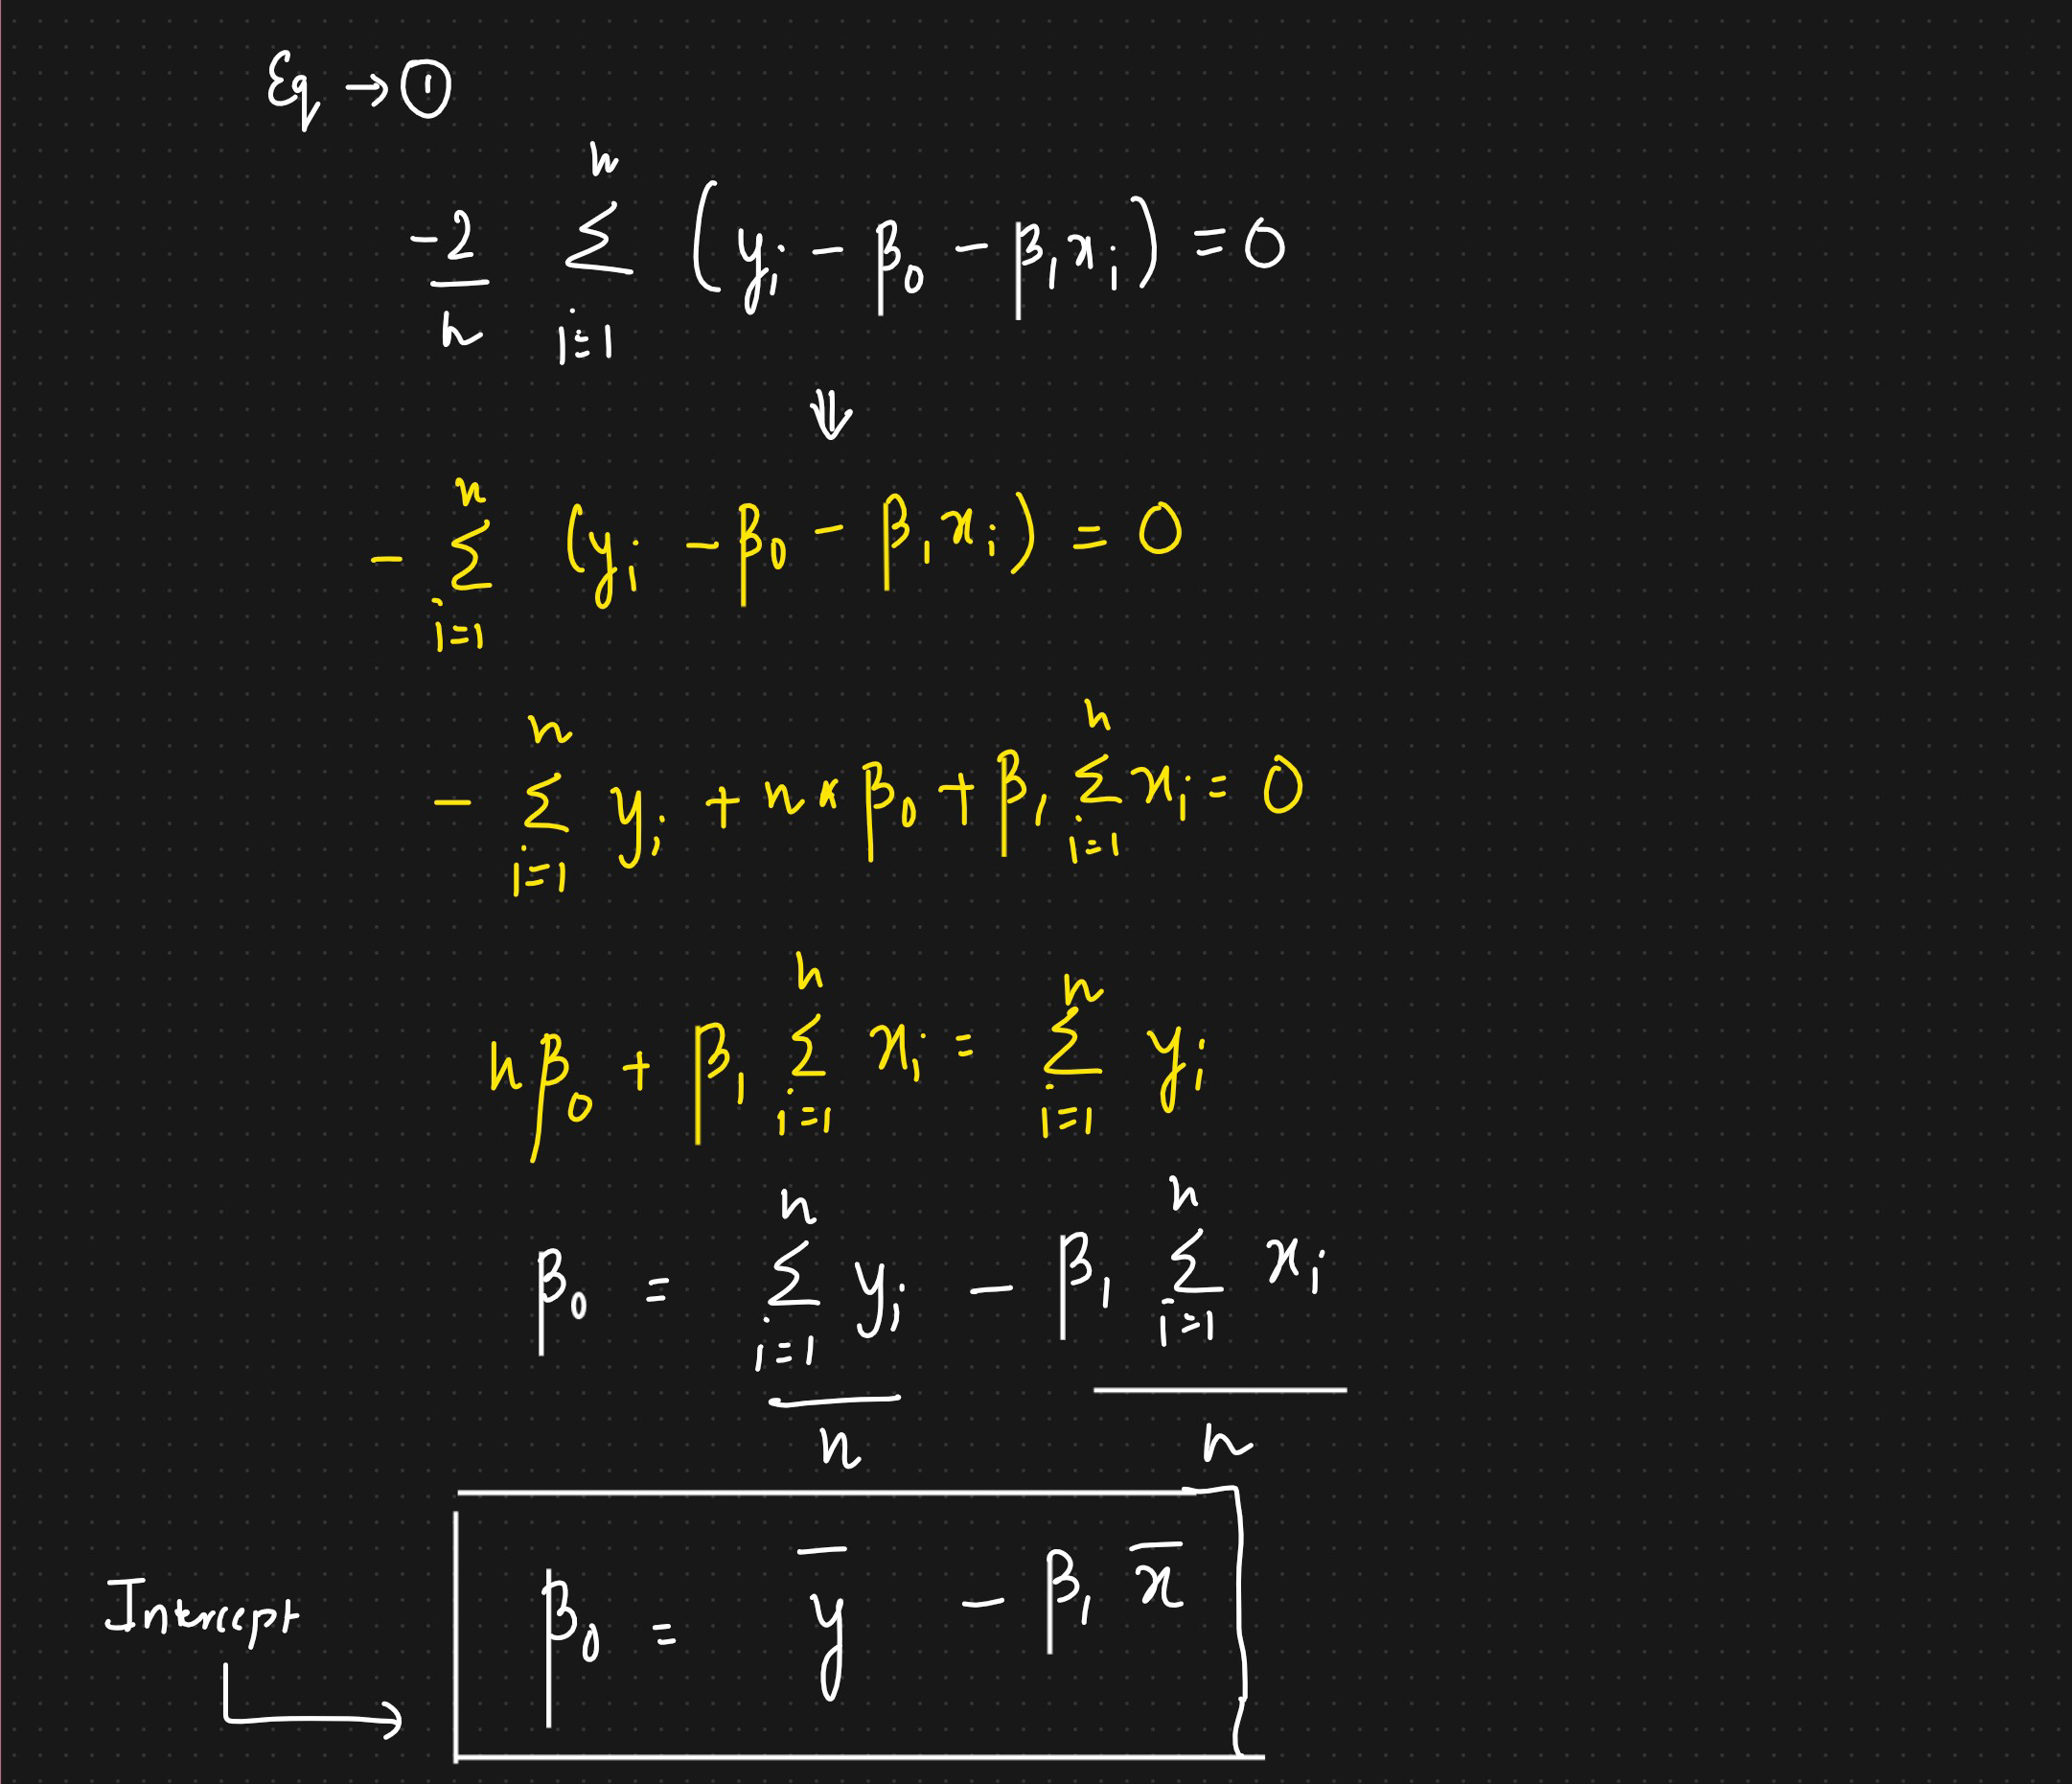 Eq → ①
-2/n Σ_{i=1}^{n} (y_i - β_0 - β_1 x_i) = 0
⇓
- Σ_{i=1}^{n} (y_i - β_0 - β_1 x_i) = 0
- Σ_{i=1}^{n} y_i + n * β_0 + β_1 Σ_{i=1}^{n} x_i = 0
nβ_0 + β_1 Σ_{i=1}^{n} x_i = Σ_{i=1}^{n} y_i
β_0 = (Σ_{i=1}^{n} y_i)/n - (β_1 Σ_{i=1}^{n} x_i)/n
Intercept → β_0 = ȳ - β_1 x̄